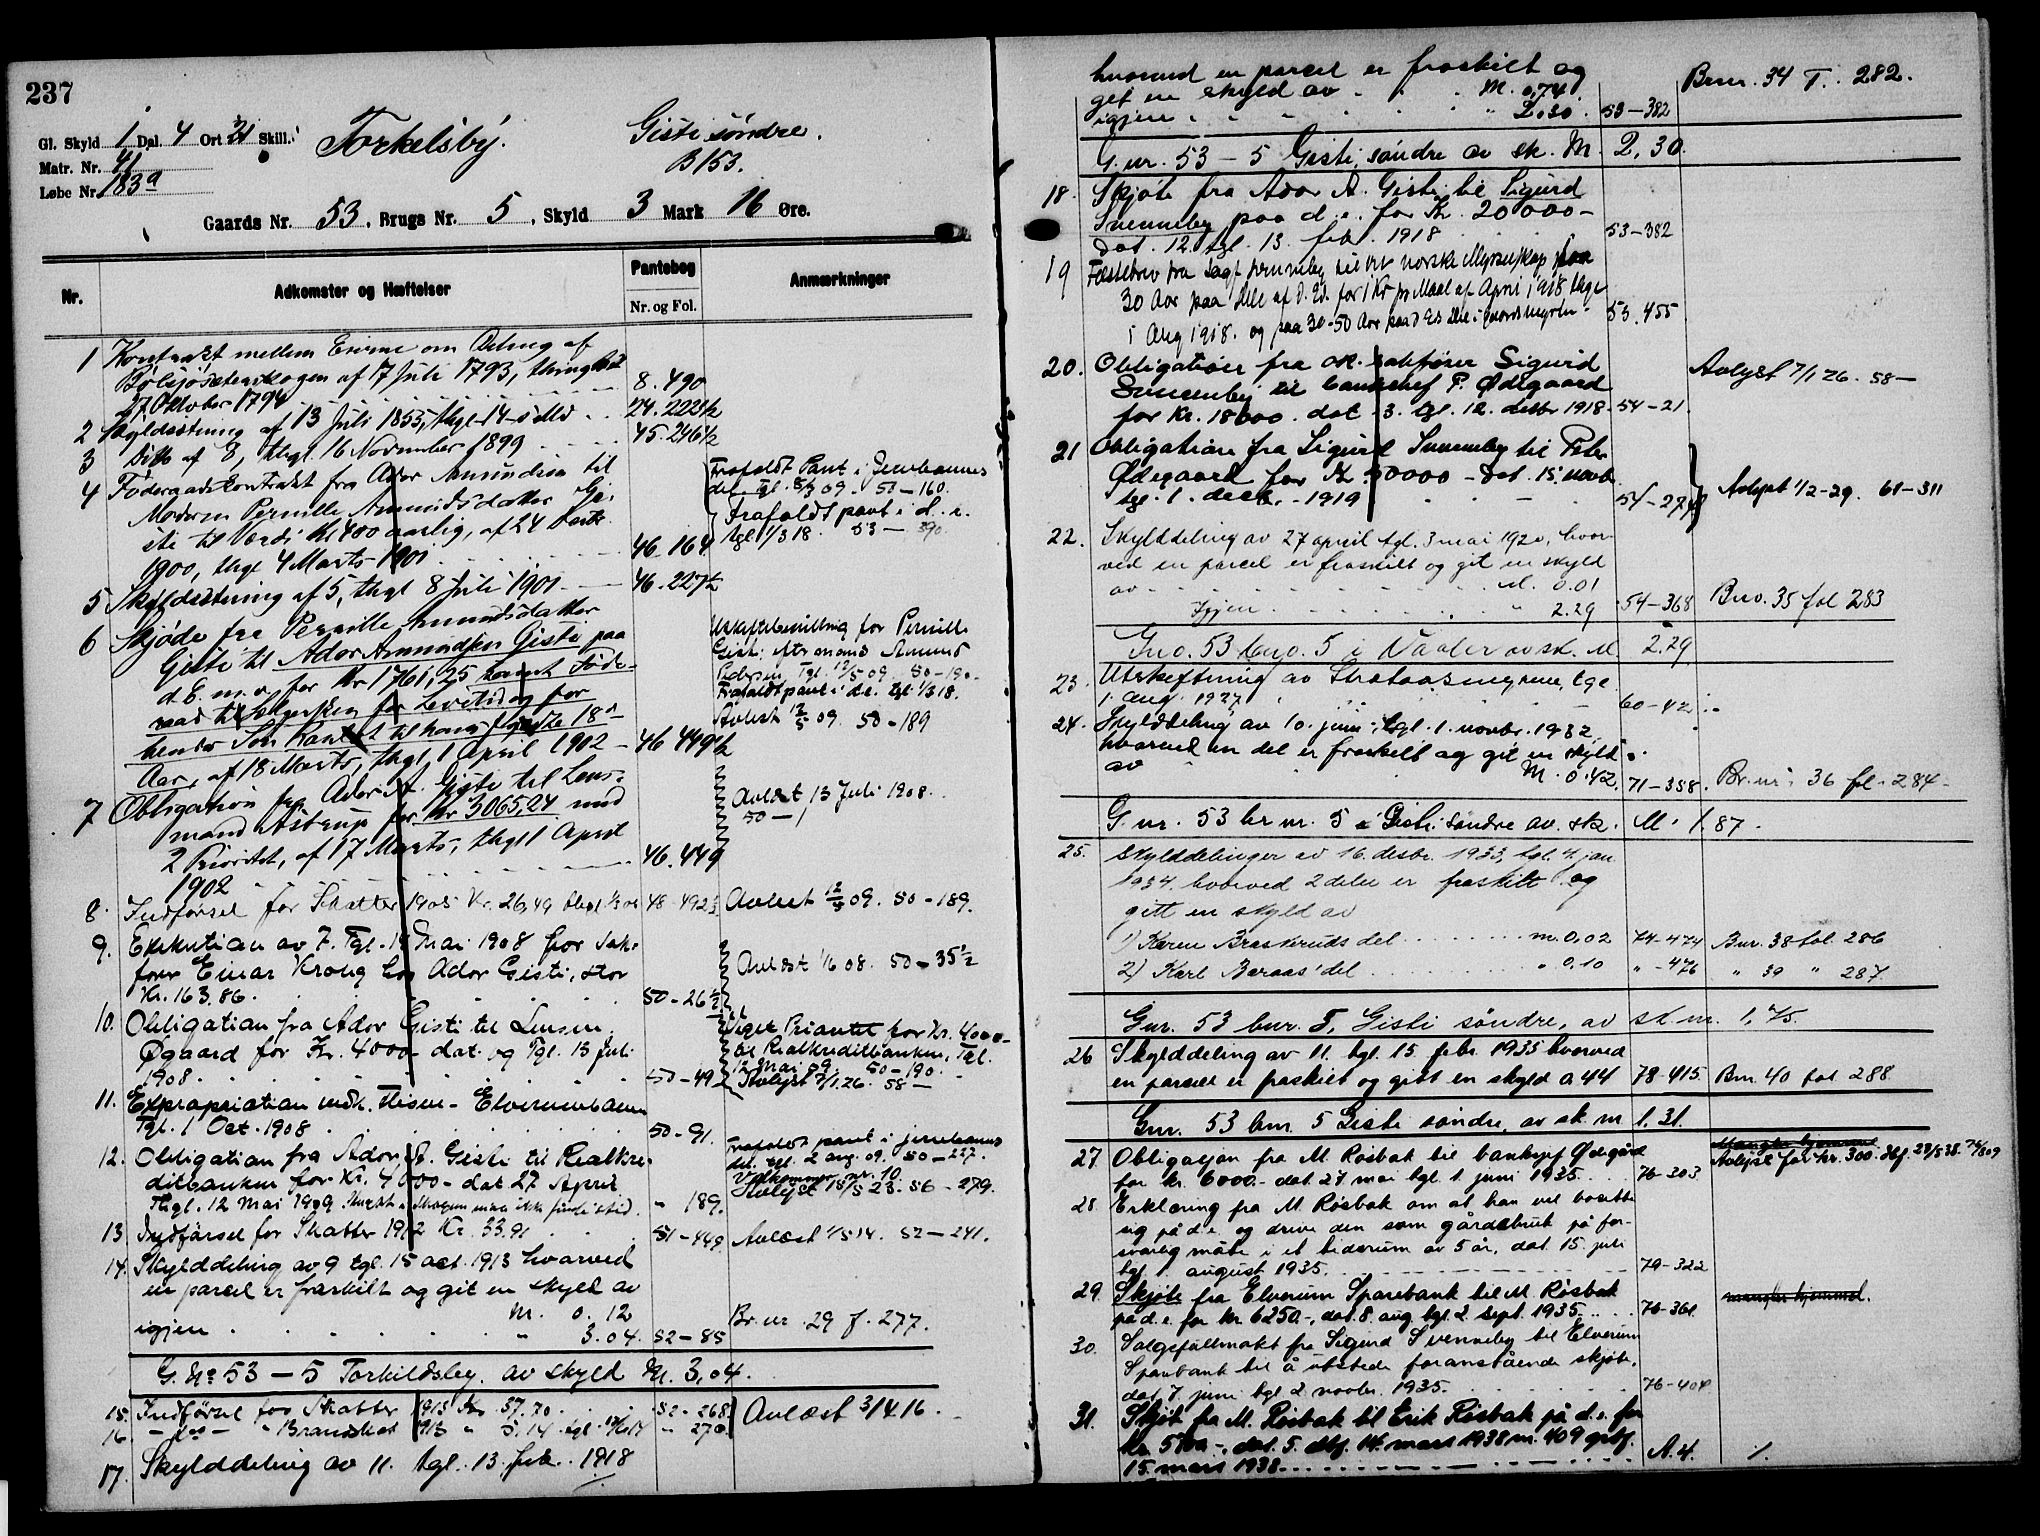 237
Gl. Skyld 1 Dal. 4 Ort 21 Skill.
Matr. Nr. 41
Løbe Nr. 183a
Torkelsby.
Gisti søndre.
B 153.
Gaards Nr. 53, Brugs Nr. 5, Skyld 3 Mark 16 Øre.
Nr.
Adkomster og Hæftelser
Pantebog
Nr. og Fol.
Anmærkninger
1 Kontrakt mellem Eierne om Deling af
af 17 Juli 1793, thinglæst
27 Oktober 1794 8. 490
2 Skyldsetning af 13 Juli 1853, thgl 14 s Md 24. 222½
3 Ditto af 8, thgl. 16 November 1899 45. 246½
4 Føderaadskontrakt fra Ador Amundsen til
Moderen Pernille Amundsdatter Gi-
sti til Værdi Kr 400 aarlig, af 24 Septbr
1900, thgl 4 Marts 1901 46. 164
Frafaldt Pant i Jernbanens
del. Tgl. 8/3 09. 50-160.
Frafaldt pant i d. e.
tgl 1/3 18. 53-390.
5 Skyldsetning af 5, thgl 8 Juli 1901 46. 227½
6 Skjøde fra Pernille Amundsdatter
Gisti til Ador Amundsen Gisti paa
d. E. m. v. for Kr 1761,25 samt Føde-
raad til Sælgersken for Levetid og for
hendes Søn til hans fyldte 18de
Aar, af 18 Marts, thgl 1 April 1902 46 449½
for Pernille
Gisti efter mand Amund
Pedersen, Tgl. 12/5 09. 50-190.
Frafaldt pant i de. tgl 1/3 18.
Avlæst 12/5 09. 50-189
7 Obligation fra Ador A. Gisti til Lens-
mand Astrup for Kr 3065,24 med
2 Prioritet, af 17 Marts, thgl 1 April
1902 46. 449
Avlæst 13 Juli 1908.
50-1
8. Indførsel for Skatter 1905 Kr. 26,49 48-492½ Avlæst 12/5 09. 50-189.
9. Exekution av 7. Tgl. 14 Mai 1908 for Sak-
fører Einar Krong hos Ador Gisti, stor
Kr. 163.86. 50-26½
Avlæst 1/6 08. 50-35½
10. Obligation fra Ador Gisti til Lensm.
Øgaard for Kr. 4000 dat. og Tgl. 13 Juli
1908. 50-49
Veget Prioritet for Kr. 4000-
til Realkreditbanken, Tgl.
12 Mai 09. 50-190.
Avlyst 7/1.26. 58-
11. Expropriation vedk. Flisen-Elverumbanen
Tgl. 1 Oct. 1908 50-91.
12. Obligation fra Ador A. Gisti til Realkre-
ditbanken for Kr. 4000- dat 27 April
Thgl. 12 Mai 1909. " 189.
Frafaldt pant i jernbanens
del. tgl. 2 aug. 09. 50-227.
Vedkommer nr. 10
Avlyst 15/5 23. 56-279.
13. Indførsel for Skatter 1912 Kr. 33.91 51-449. Avlæst 1/5 14. 52-241.
14. Skylddeling av 9 tgl. 15 oct. 1913 hvorved
en parcel er fraskilt og git en skyld av
M. 0.12
igjen " 3.04. 52-85
Br. nr. 29 f. 277.
G. No 53-5 Torkildsby. av skyld M. 3,04.
15. Indførsel for Skatter 1913 Kr. 37.70 52-268 Avlæst 3/4 16.
16. -do- " Brandskat 1913 " 5.14 " 270
17. Skylddeling av 11. tgl. 13. febr. 1918
hvorved en parcel er fraskilt og
git en skyld av M. 0,74
igjen 2.30. 53-382
Brnr. 34 F. 282.
G. nr. 53-5 Gisti søndre av sk. M. 2,30.
18. Skjøte fra Ador A. Gisti til Sigurd
Svenneby paa d. e. for Kr. 20 000-
Dat. 12 tgl. 13. febr. 1918 53-382
19 Fæstebrev fra Sagf. Svenneby til Det norske Myrselskap paa
30 Aar paa Mele af d. Ed. for 1 Kr pr Maal af April 1918 thgl
i Aug 1918. og paa 30-50 Aar 53.455
20. Obligation fra o.r. sakfører Sigurd
Svenneby til banksjef P. Ødegaard
for Kr. 18 000. dat. 3. tgl. 12. desbr 1918. 54-21.
Avlyst 7/1 26. 58-
21 Obligation fra Sigurd Svenneby til Peter
Ødegaard for Kr. 30000- Dat. 15 novb.
tgl. 1. decbr. 1919 54-274
Avlyst 1/2-29. 61-311
22. Skylddeling av 27 april tgl. 3 mai 1920, hvor-
ved en parcel er fraskilt og git en skyld
av M. 0.01
Igjen " 2.29 54-368 Bno. 35 fol 283
Gno. 53 bno. 5 i Vaaler av sk. M. 2.29
23. Utskiftning av tgl.
1. aug. 1927 60-42
24. Skylddeling av 10. juni, tgl. 1. novbr. 1932,
hvorved en del er fraskilt og git en skyld
av M. 0.42. 71-358. Br. nr. 36 fl. 284-
G. nr. 53 br. nr. 5 i Gisti søndre av sk. M. 1.87.
25. Skylddelinger av 16. desbr. 1933, tgl. 4. jan
1934. hvorved 2 deler er fraskilt og
gitt en skyld av
1) Karen Braskeruds del m. 0,02 74-474 Bnr. 38 fol. 286
2) Karl Baraas' del " 0.10 " -476 " 39 " 287.
Gnr. 53 bnr. 5, Gisti søndre, av sk m. 1,75.
26 Skylddeling av 11. tgl. 15. febr. 1935 hvorved
en parsell er fraskilt og gitt en skyld 0.44 78-415. Bnr. 40 fol 288.
Gnr. 53 bnr. 5 Gisti søndre, av sk. m 1.31.
27. Obligasjon fra M. Røsbak til banksjef Ødegård
for kr. 6000.- dat. 27 mai tgl. 1. juni 1935. 76-303
Mangler hjemmel
Avlyst for kr. 300. dbf. 28/5 38.
28. Erklæring fra M. Røsbak om at han vil bosette
sig på d. e. og drive den som gårdsbruk på for-
svarlig måte i et tidsrum av 5 år, dat. 15. juli
tgl. 1. august 1935. 76-322
29. Skjøte fra Elverum Sparebank til M. Røsbak
på d. e. for kr 6250.-, dat. 8. aug. tgl. 2. sept. 1935. 76-361
mangler hjemmel.
30. Salgsfullmakt fra Sigurd Svenneby til Elverum
Sparebank til å utstede foranstående skjøte,
dat. 7. juni tgl. 2. novbr. 1935. 76-404
31. Skjøt fra M. Røsbak til Erik Røsbak på d. e. for
kr. 5700-, dat. 5. dbf. 14. mars 1938 m. 409
15. mars 1938. A. 4. 1.